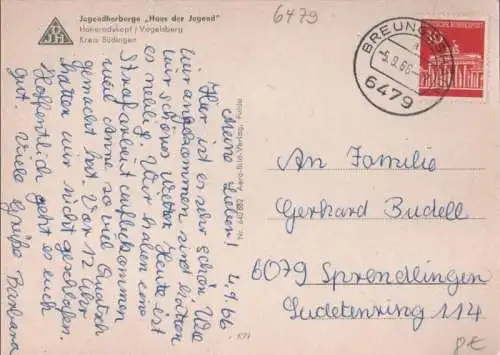 Jugendherberge „Haus der Jugend"
Hoherodskopf / Vogelsberg
Kreis Büdingen
6479
BREUNGES
-5.9.66-
6479
DEUTSCHE BUNDESPOST
4.9.66
Meine Lieben!
Hier ist es sehr schön. Wie
wir angekommen sind hatten
wir schönes Wetter. Heute ist
es neblig. Wir haben eine
Strafarbeit aufbekommen
weil Anne so viel Quatsch
gemacht hat. Vor 12 Uhr
hatten wir nicht geschlafen.
Hoffentlich geht es euch
gut. Viele Grüße Barbara
Aero-Bild-Verlag, Fulda
An Familie
Gerhard Budell
6079 Sprendlingen
Sudetenring 114
8€